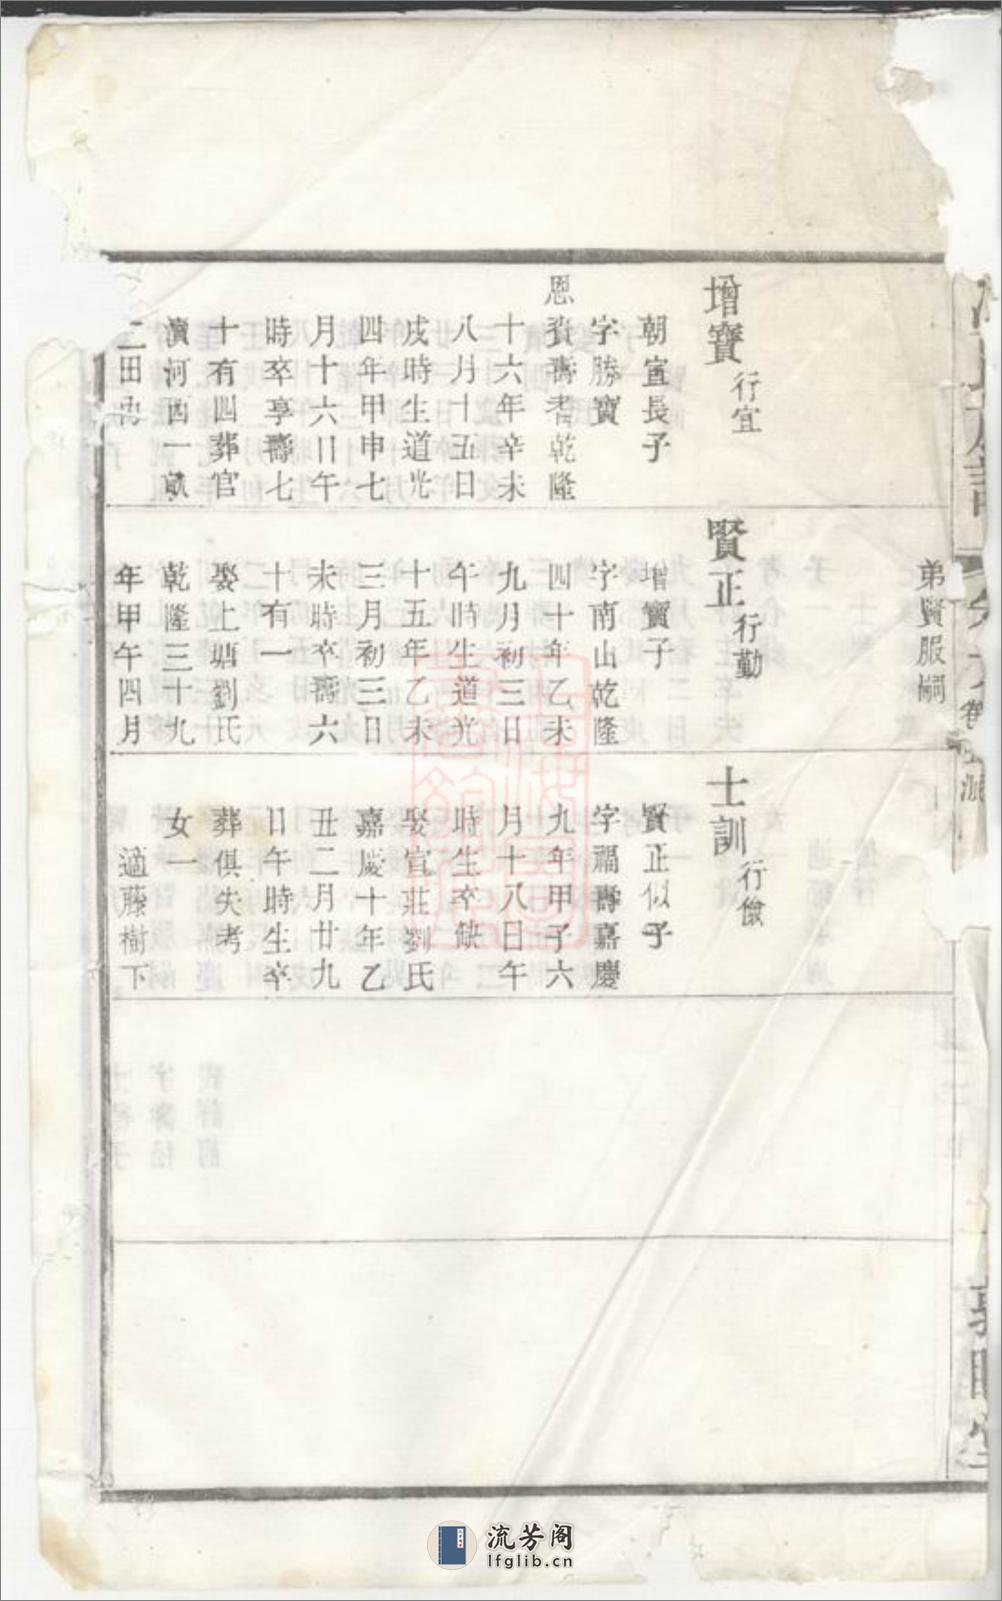 弟賢服嗣
增寶 行宜
朝宣長子
字勝寶
恩賚壽者乾隆
十六年辛未
八月十五日
戌時生道光
四年甲申七
月十六日午
時卒享壽七
十有四葬官
瀆河西一畝
二田
賢正 行勤
增寶子
字南山乾隆
四十年乙未
九月初三日
午時生道光
十五年乙未
三月初三日
未時卒壽六
十有一
娶上塘劉氏
乾隆三十九
年甲午四月
士訓 行儉
賢正似子
字福壽嘉慶
九年甲子六
月十八日午
時生卒缺
娶官莊劉氏
嘉慶十年乙
丑二月廿九
日午時生卒
葬俱失考
女一
適藤樹下
流芳阁
lfglib.cn